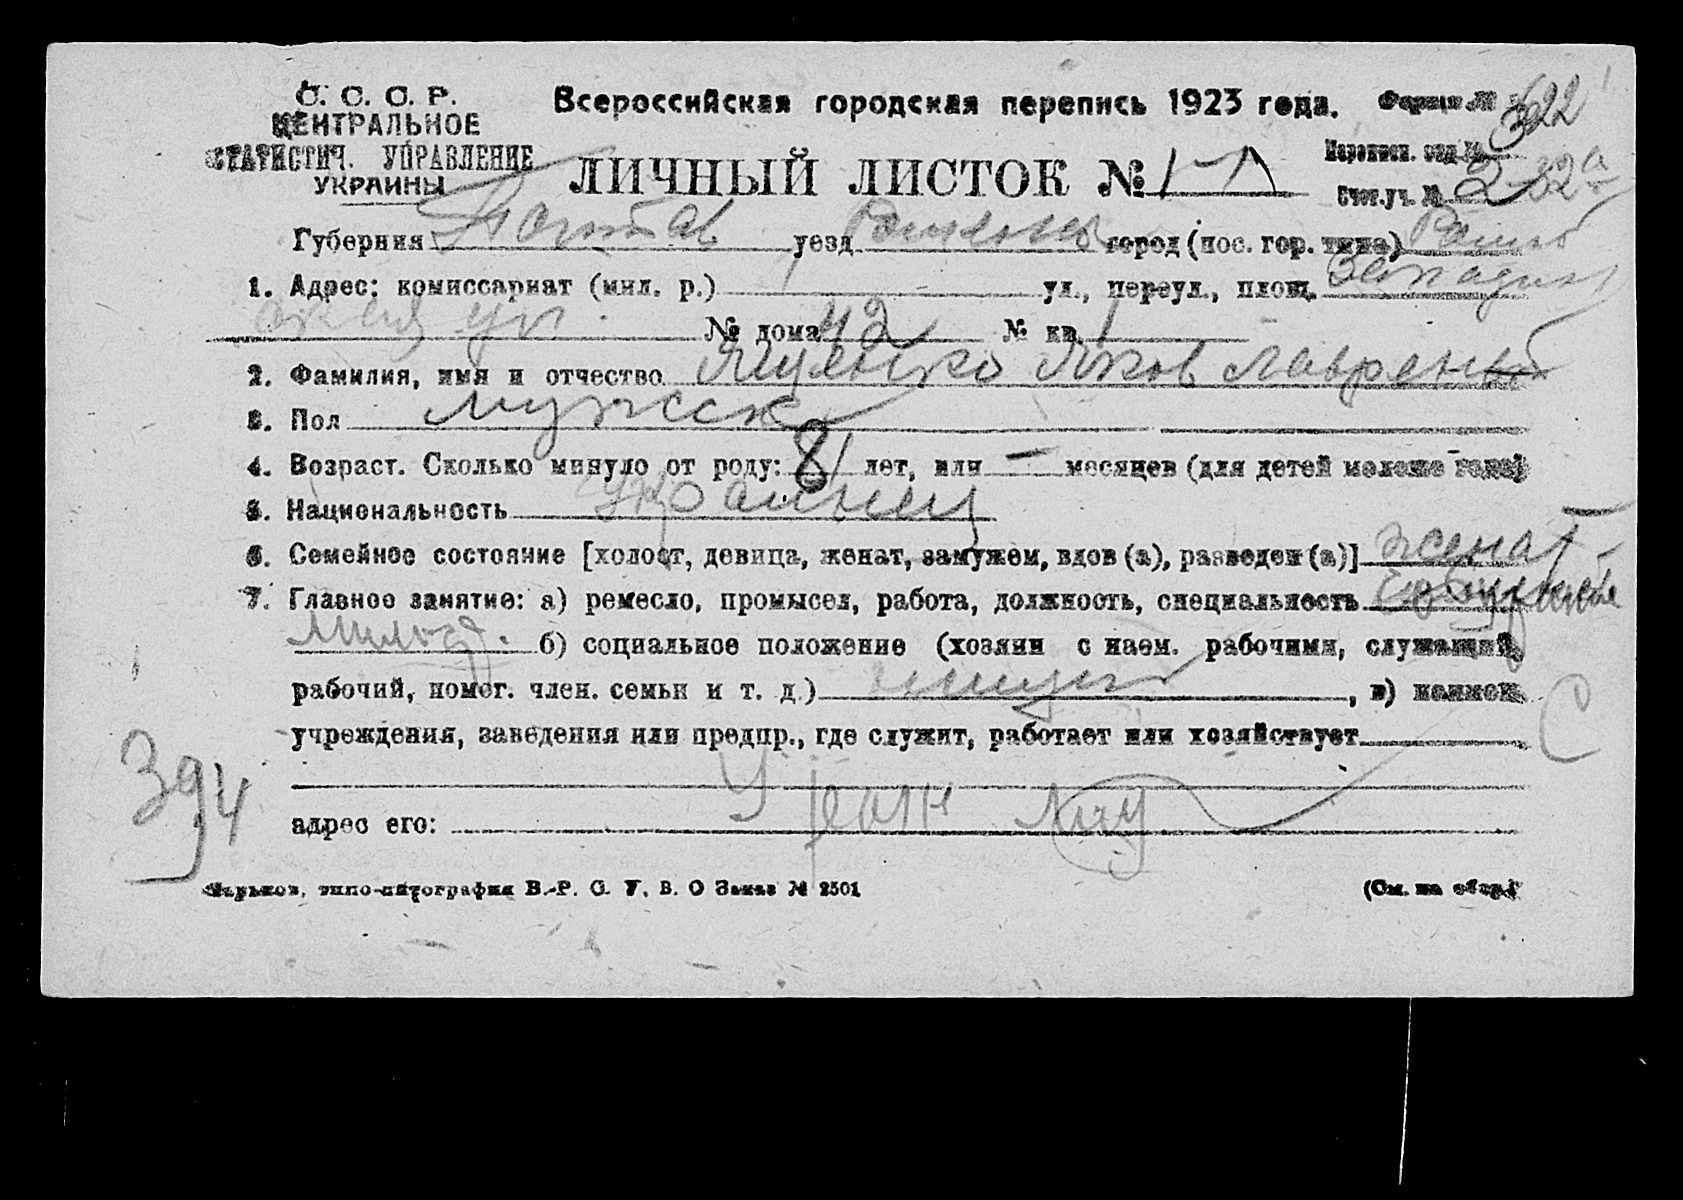 С. С. С. Р.
ЦЕНТРАЛЬНОЕ
СТАТИСТИЧ. УПРАВЛЕНИЕ
УКРАИНЫ
Всероссийская городская перепись 1923 года.
Форма №
ЛИЧНЫЙ ЛИСТОК № 1
Переписн. отд. № 3
Счет. уч. № 2
Губерния Полтав уезд город (пос. гор. типа)
1. Адрес: комиссариат (мил. р.) ул., переул., площ.
ул. № дома 42 № кв. 1
2. Фамилия, имя и отчество Яков Лаврен
3. Пол мужск
4. Возраст. Сколько минуло от роду: 81 лет, или — месяцев (для детей моложе года)
5. Национальность украинец
6. Семейное состояние [холост, девица, женат, замужем, вдов (а), разведен (а)] женат
7. Главное занятие: а) ремесло, промысел, работа, должность, специальность
б) социальное положение (хозяин с наем. рабочими, служащий,
рабочий, помог. член. семьи и т. д.) нищий, в) наимен.
учреждения, заведения или предпр., где служит, работает или хозяйствует
С
394
адрес его:
Харьков, типо-литография В.-Р. С. У. В. О Заказ № 2501
(См. на обор.)